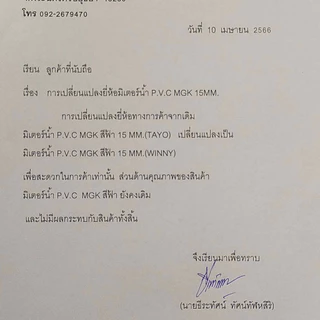 โทร 092-2679470
วันที่ 10 เมษายน 2566
เรียน ลูกค้าที่นับถือ
เรื่อง การเปลี่ยนแปลงยี่ห้อมิเตอร์น้ำ P.V.C MGK 15MM.
การเปลี่ยนแปลงยี่ห้อทางการค้าจากเดิม
มิเตอร์น้ำ P.V.C MGK สีฟ้า 15 MM.(TAYO) เปลี่ยนแปลงเป็น
มิเตอร์น้ำ P.V.C MGK สีฟ้า 15 MM.(WINNY)
เพื่อสะดวกในการค้าเท่านั้น ส่วนด้านคุณภาพของสินค้า
มิเตอร์น้ำ P.V.C MGK สีฟ้า ยังคงเดิม
และไม่มีผลกระทบกับสินค้าทั้งสิ้น
จึงเรียนมาเพื่อทราบ
(นายธีระทัศน์ ทัศน์ทัฬหสิริ)